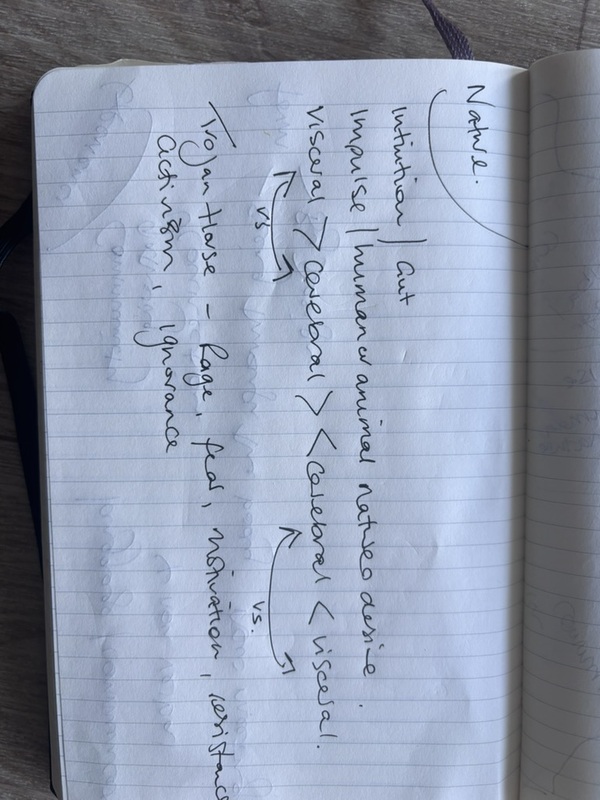 Nature.
Intuition / Gut
Impulse / human or animal nature desire.
visceral > cerebral > < cerebral < visceral.
vs
vs.
Trojan Horse - Rage, fear, motivation, resistance
activism, ignorance